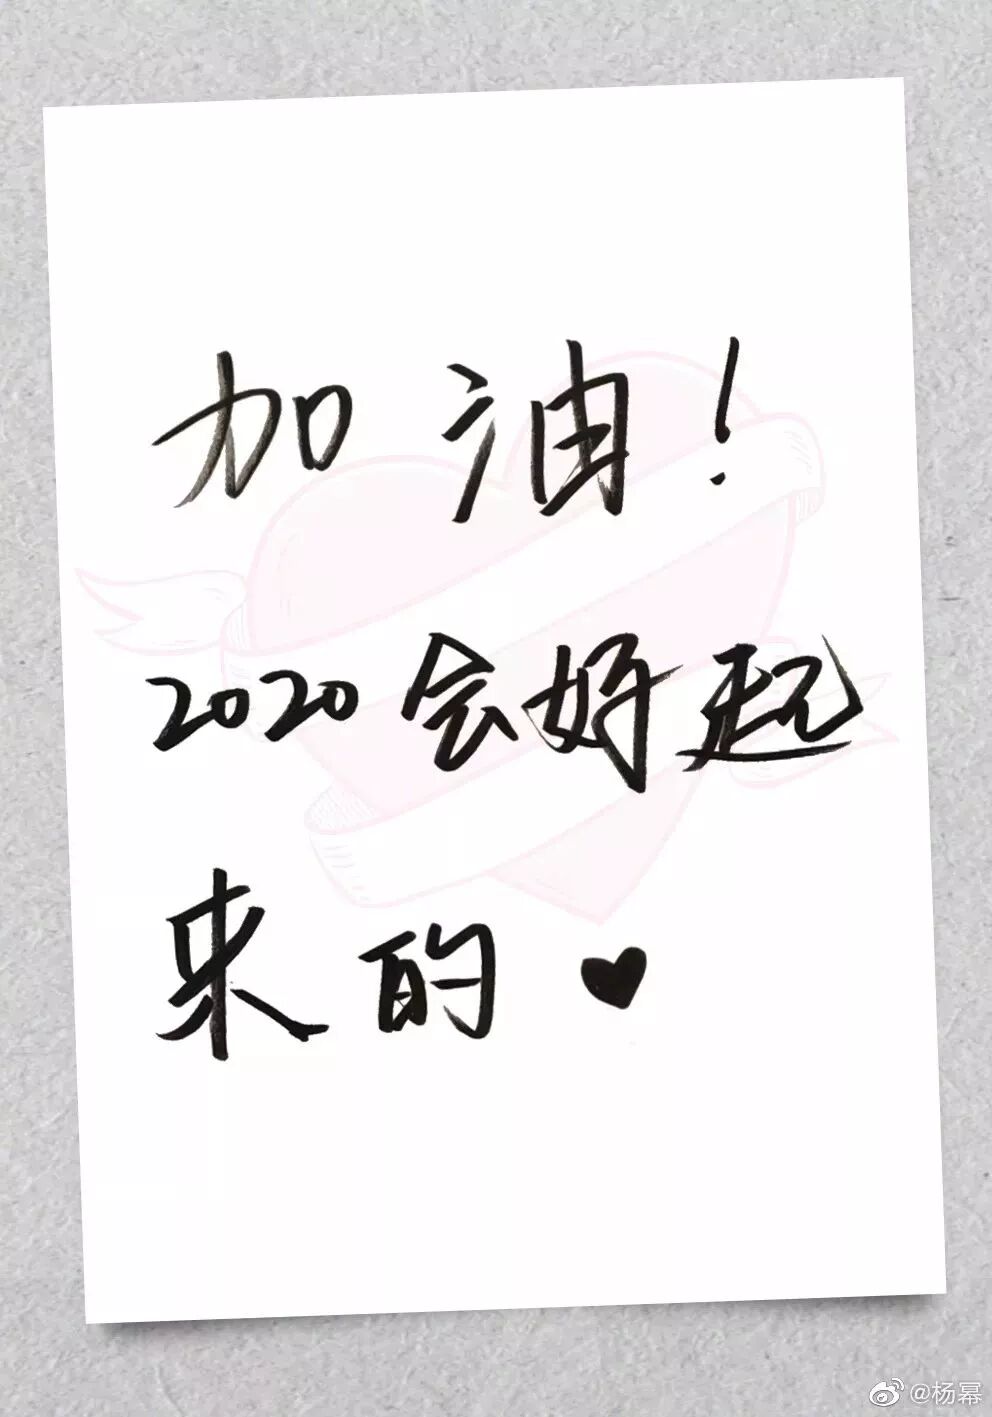 加油！
2020会好起
来的♥
@杨幂